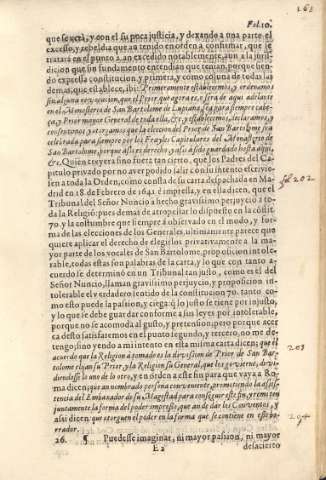 263
Fol. 10.
que se verà, y con el su poca justicia, y dexando a una parte el
excesso, y rebeldia que an tenido en orden a confirmar, que se
tratarà en el punto 2. an excedido notablemente, aun a la juris-
dicion que sin fundamento entendian que tenian, porque tien
expressa constitucion, y primera, y como coluna de todas las
demas, que establece, ibi: Primeramente establecemos, y ordenamos
en el Monasterio de San Bartolome de Lupiana, sea para siempre cabe-
ça, y Prior mayor General de toda ella, &c. y establecemos, declaramos, y
constituimos, y otorgamos que la eleccion del Prior de San Bartolome sea
celebrada para siempre por los Frayles Capitulares del Monasterio de
San Bartolome, porque assi es derecho, y assi a sido guardado hasta aqui,
&c. Quien creyera sino fuera tan cierto, que los Padres del Ca-
pitulo privado por no aver podido salir con su intento escrivie-
sen a toda la Orden, como consta de su carta despachada en Ma-
drid en 18. de Febrero de 1642. è impressa, y en ella dicen, que el
Tribunal del Señor Nuncio a hecho gravissimo perjuycio a to-
da la Religiō: pues demas de atropellar lo dispuesto en la cōstit.
70. y la costumbre que siempre à observado en el modo, y for-
ma de las elecciones de los Generales, ultimamente parece que
quiere aplicar el derecho de elegirlos privativamente a la ma-
yor parte de los vocales de San Bartolome, proposicion intole-
rable, todas estas son palabras de la carta, y lo que con tanto a-
cuerdo se determinò en un Tribunal tan justo, como es el del
Señor Nuncio, llaman gravissimo perjuycio, y proposicion in-
tolerable el verdadero sentido de la constitucion 70. tanto co-
mo esto puede la passion, y ciega a lo justo se tiene por injusto,
y lo que se debe guardar conforme a sus leyes por intolerable,
porque no se acomoda al gusto, y pretension, pero porque acer-
ca desto satisfaremos en el punto segundo, y tercero, no me de-
tengo, sino yendo a mi intento en esta misma carta dicen; que el
acuerdo que la Religion a tomado es la division de Prior de San Bar-
tolome elijan su Prior, y la Religion su General, que los govierne, divi-
diendosse lo uno de lo otro, y en orden a este fin para que vaya a Ro-
ma dicen; que an nombrado persona conveniente, prometiendo la asis-
tencia del Embaxador de su Magestad para conseguir este fin, y remiten
juntamente la forma del poder impresso, que an de dar los Conventos, y
assi dicen: que otorguen el poder en la forma que se contiene en este bo-
rrador.
fol 202
203
204
26. ¶ Puedesse imaginar, ni mayor passion, ni mayor
E 2
desacierto